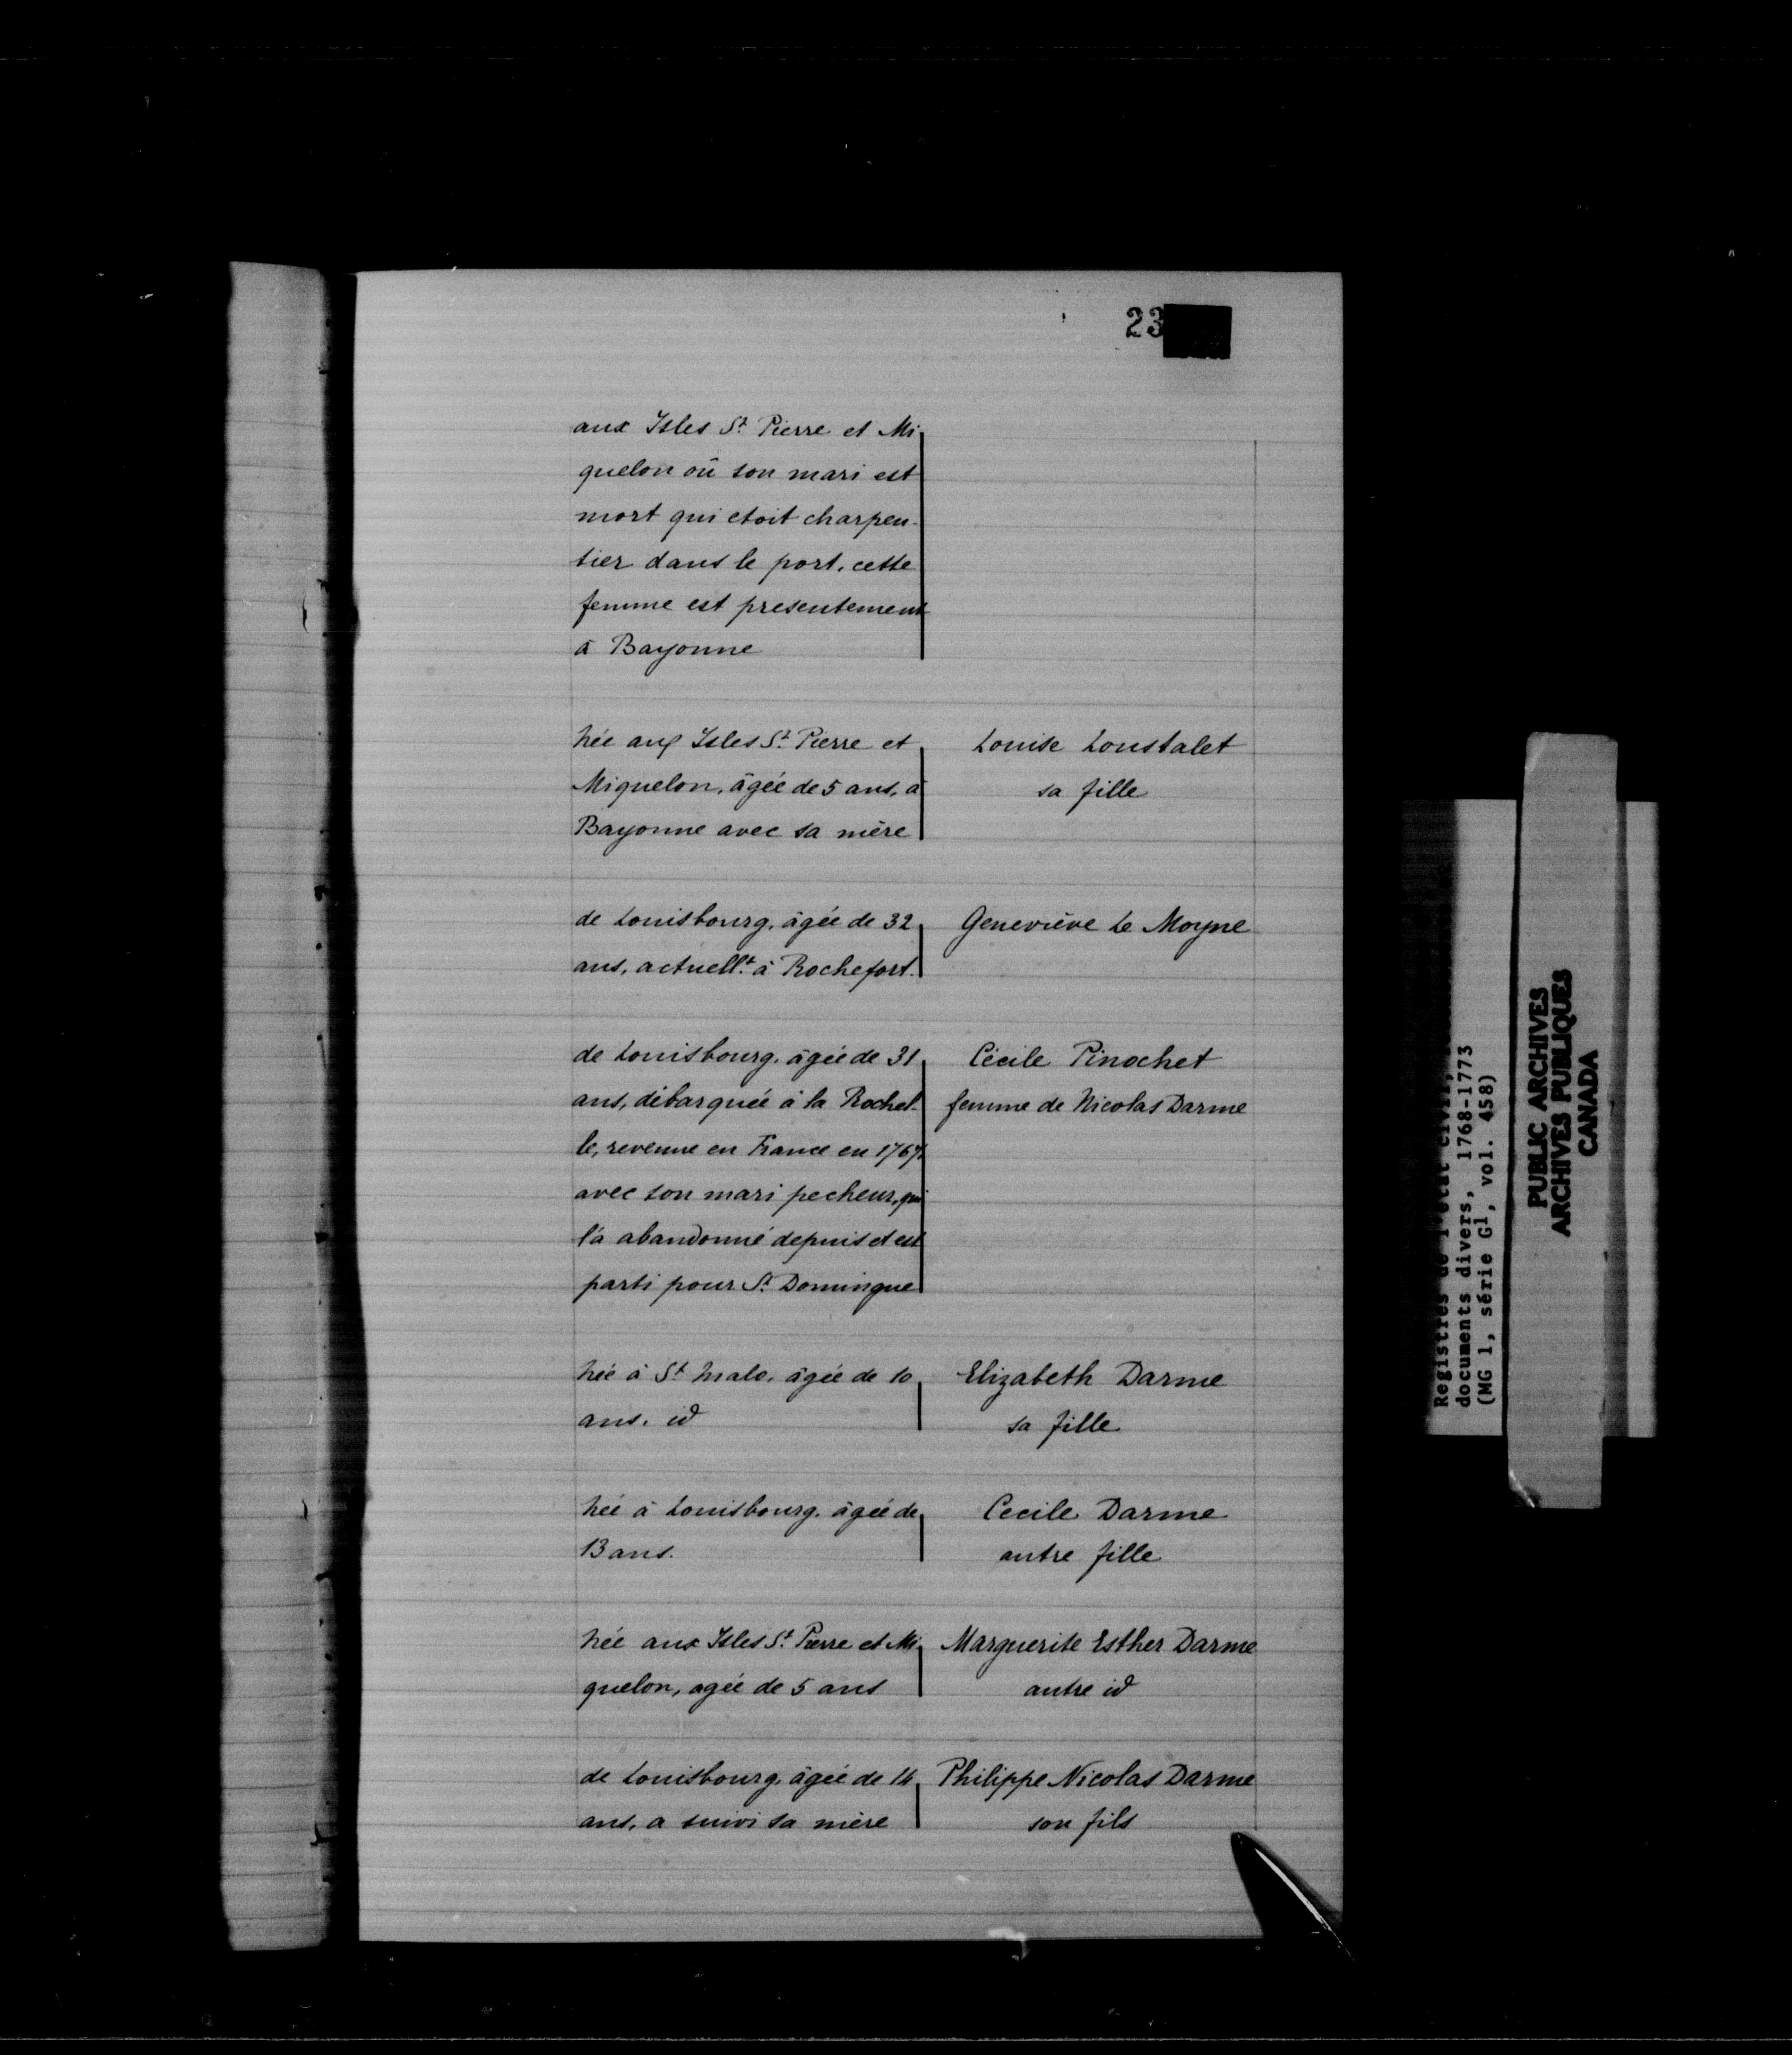 23
aux Isles St. Pierre et Mi
quelon où son mari est
mort qui etoit charpen-
tier dans le port. cette
femme est presentement
à Bayonne
Née aux Isles St. Pierre et
Miquelon, âgée de 5 ans, à
Bayonne avec sa mère
Louise Loustalet
sa fille
de Louisbourg. âgée de 32
ans, actuellt. à Rochefort.
Geneviève Le Moyne
de Louisbourg. âgée de 31
ans, débarquée à la Rochel-
le, revenue en France en 1767,
avec son mari pecheur, qui
l'a abandonné depuis et est
parti pour St. Domingue
Cécile Pinochet
femme de Nicolas Darme
Née à St. Malo. âgée de 10
ans. id
Elizabeth Darme
sa fille
Née à Louisbourg. âgée de
13 ans.
Cecile Darme
autre fille
Née aux Isles St. Pierre et Mi
quelon, agée de 5 ans
Marguerite Esther Darme
autre id
de Louisbourg. âgée de 14
ans, a suivi sa mère
Philippe Nicolas Darme
son fils
Registres de l'état civil,
documents divers, 1768-1773
(MG 1, série G1, vol. 458)
PUBLIC ARCHIVES
ARCHIVES PUBLIQUES
CANADA